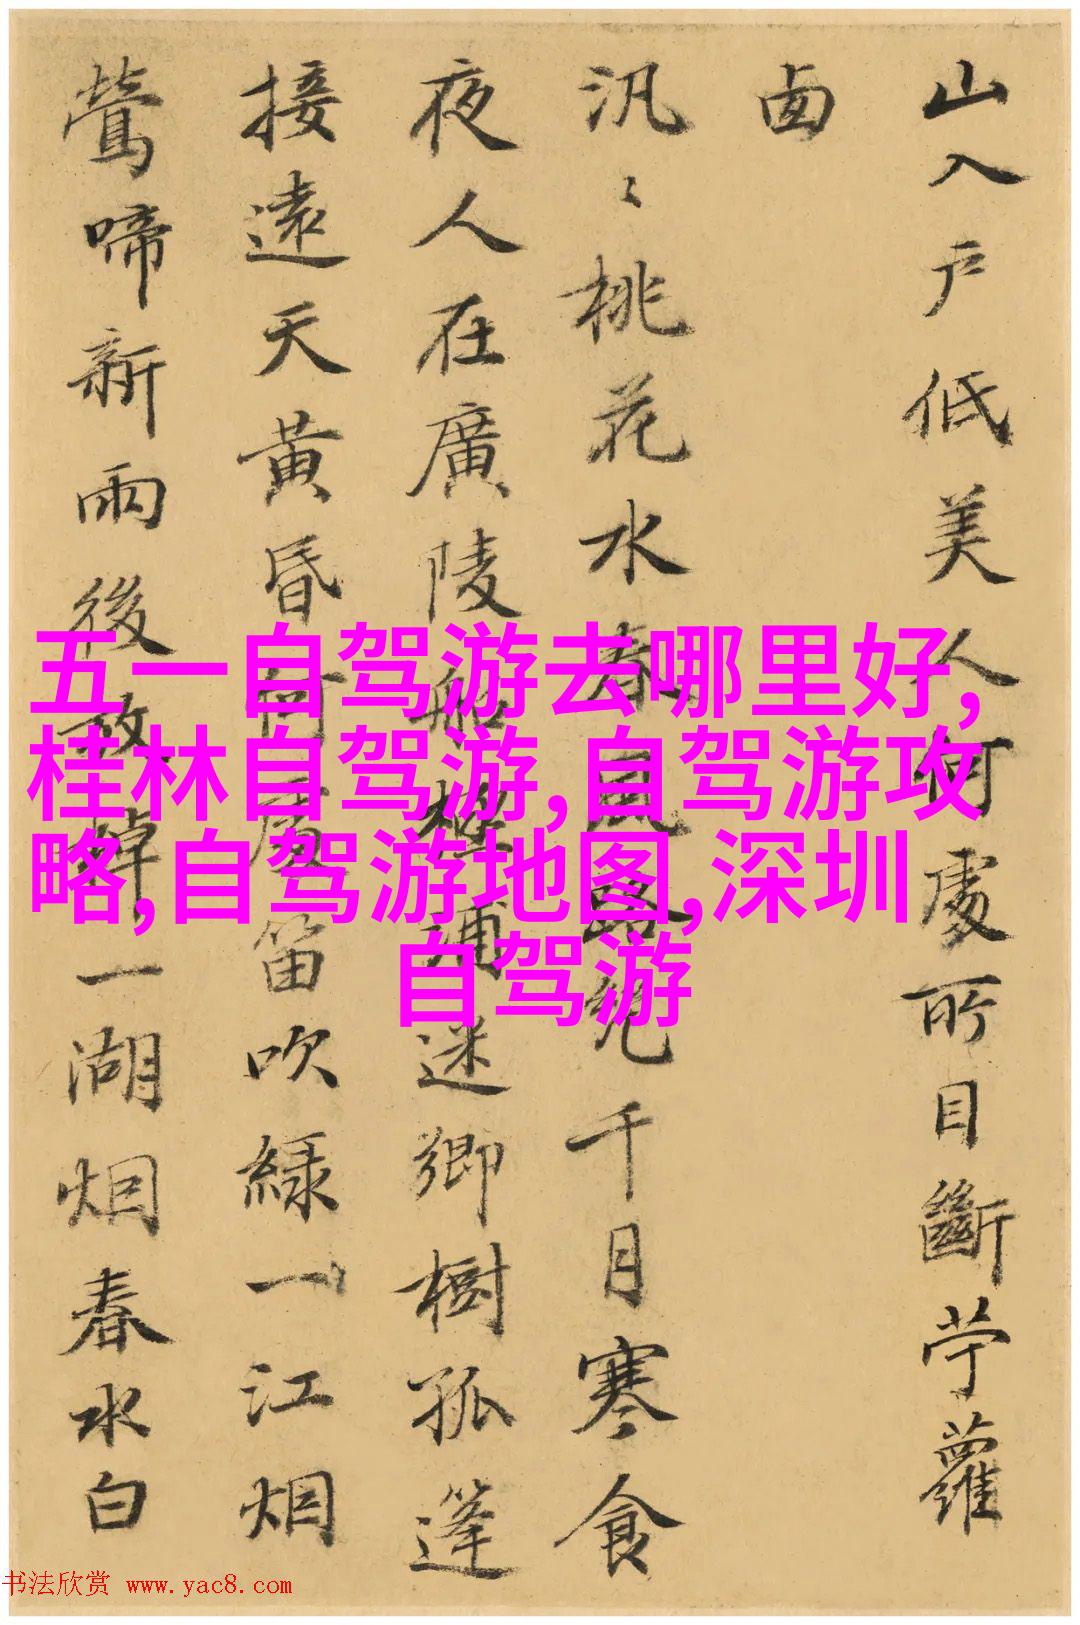 山入戶低美人何處所目斷苧蘿
汎〻桃花水春風路千月寒食
夜人在廣陵船極浦迷鄉樹孤篷
接遠天黃昏何處笛吹綠一江烟
鶯啼新雨後放棹一湖烟春水白
五一自驾游去哪里好,
桂林自驾游,自驾游攻
略,自驾游地图,深圳
自驾游
书法欣赏 www.yac8.com